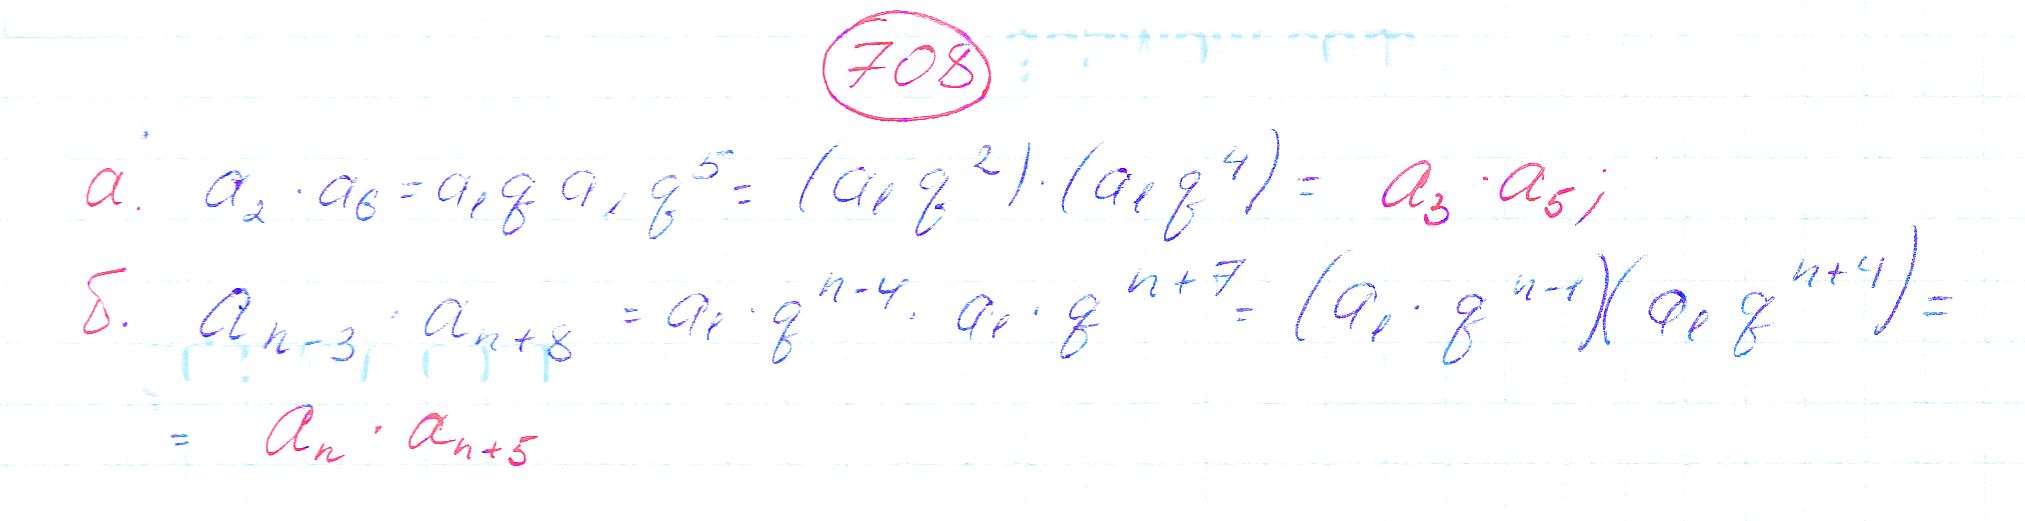 708
а. a₂ · a₆ = a₁q a₁q⁵ = (a₁q²) · (a₁q⁴) = a₃ · a₅;
б. aₙ₋₃ · aₙ₊₈ = a₁ · qⁿ⁻⁴ · a₁ · qⁿ⁺⁷ = (a₁ · qⁿ⁻¹)(a₁qⁿ⁺⁴) =
= aₙ · aₙ₊₅